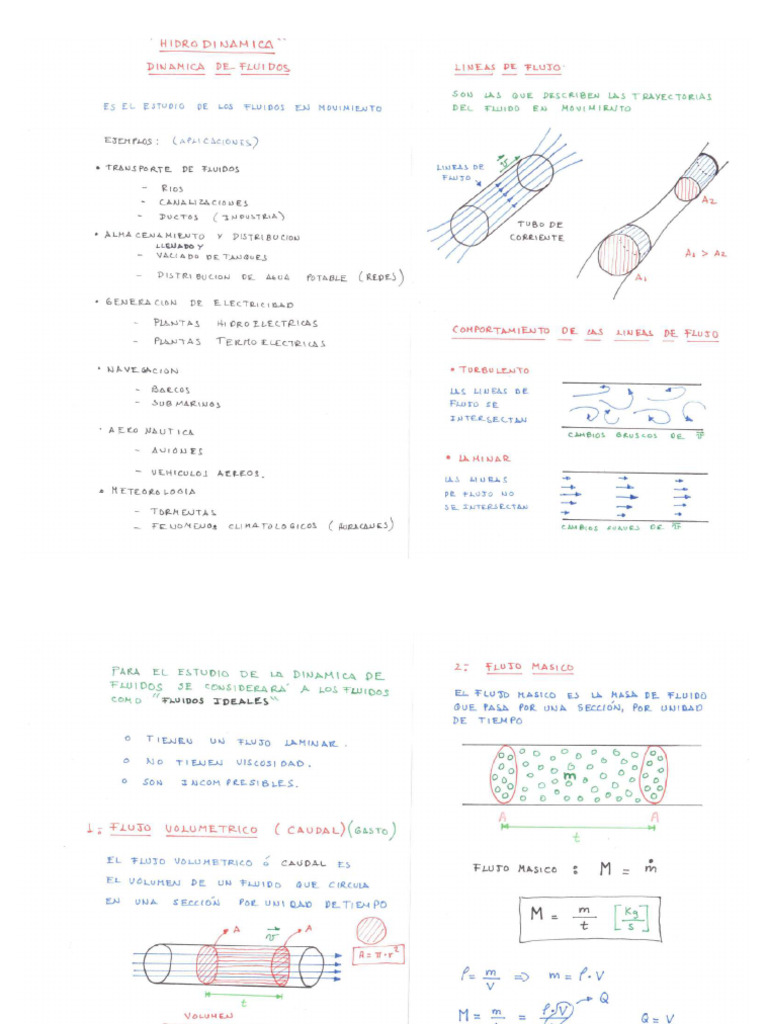 "HIDRODINAMICA"
DINAMICA DE FLUIDOS
ES EL ESTUDIO DE LOS FLUIDOS EN MOVIMIENTO
EJEMPLOS: (APLICACIONES)
• TRANSPORTE DE FLUIDOS
- RIOS
- CANALIZACIONES
- DUCTOS (INDUSTRIA)
• ALMACENAMIENTO Y DISTRIBUCION
LLENADO Y
- VACIADO DE TANQUES
- DISTRIBUCION DE AGUA POTABLE (REDES)
• GENERACION DE ELECTRICIDAD
- PLANTAS HIDROELECTRICAS
- PLANTAS TERMOELECTRICAS
• NAVEGACION
- BARCOS
- SUBMARINOS
• AERONAUTICA
- AVIONES
- VEHICULOS AEREOS.
• METEOROLOGIA
- TORMENTAS
- FENOMENOS CLIMATOLOGICOS (HURACANES)
LINEAS DE FLUJO
SON LAS QUE DESCRIBEN LAS TRAYECTORIAS
DEL FLUIDO EN MOVIMIENTO
LINEAS DE
FLUJO
v
TUBO DE
CORRIENTE
A2
A1 > A2
A1
COMPORTAMIENTO DE LAS LINEAS DE FLUJO
• TURBULENTO
LAS LINEAS DE
FLUJO SE
INTERSECTAN
CAMBIOS BRUSCOS DE v
• LAMINAR
LAS LINEAS
DE FLUJO NO
SE INTERSECTAN
CAMBIOS SUAVES DE v
PARA EL ESTUDIO DE LA DINAMICA DE
FLUIDOS SE CONSIDERARÁ A LOS FLUIDOS
COMO "FLUIDOS IDEALES"
o TIENEN UN FLUJO LAMINAR.
o NO TIENEN VISCOSIDAD.
o SON INCOMPRESIBLES.
1: FLUJO VOLUMETRICO (CAUDAL) (GASTO)
EL FLUJO VOLUMETRICO Ó CAUDAL ES
EL VOLUMEN DE UN FLUIDO QUE CIRCULA
EN UNA SECCIÓN POR UNIDAD DE TIEMPO
A
v
A
A = π·r²
t
VOLUMEN
2: FLUJO MASICO
EL FLUJO MASICO ES LA MASA DE FLUIDO
QUE PASA POR UNA SECCIÓN, POR UNIDAD
DE TIEMPO
m
A A
t
FLUJO MASICO : M = ṁ
M = m/t [Kg/s]
ρ = m/V => m = ρ·V
Q
M = m/t = ρ·V Q = V